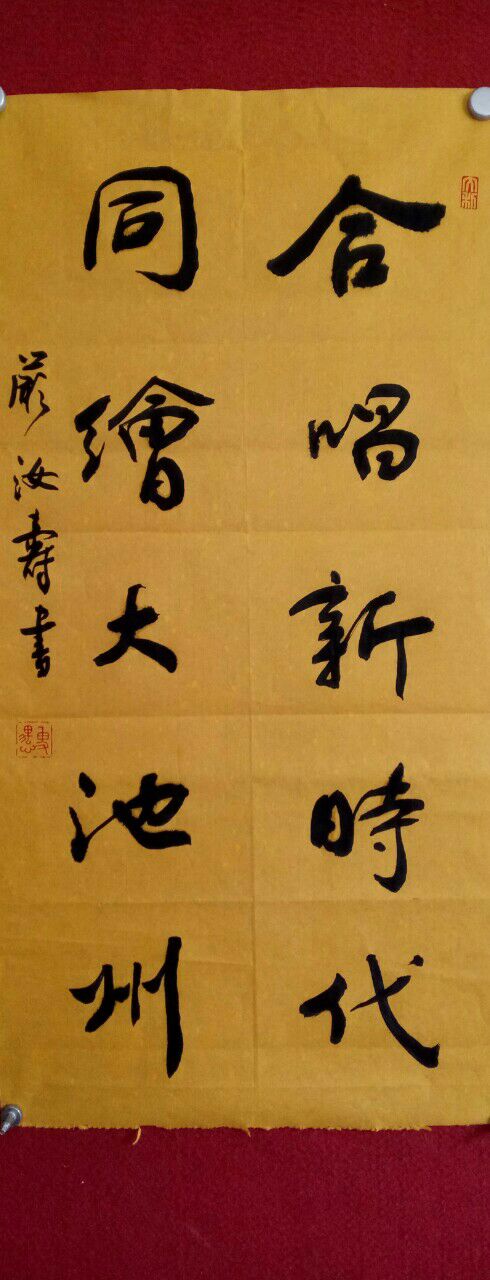 合唱新時代
同繪大池州
汝壽書